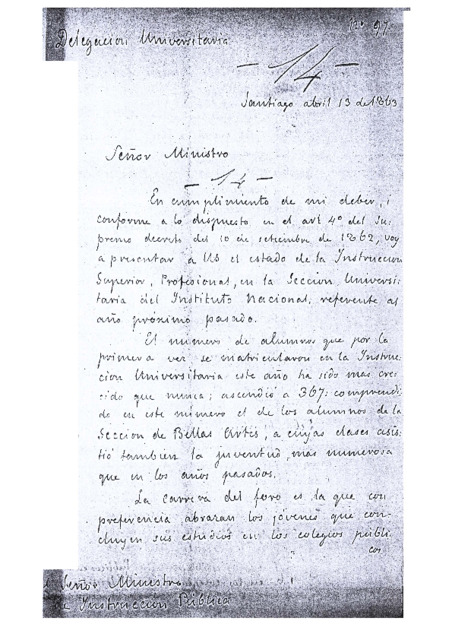 Nº 97.
Delegacion Universitaria
— 14 —
Santiago abril 13 de 1863
Señor Ministro
— 14 —
En cumplimiento de mi deber, i
conforme a lo dispuesto en el art 4º del Su-
premo decreto del 10 de setiembre de 1862, voy
a presentar a US el estado de la Instruccion
Superior, Profesional, en la Seccion Universi-
taria del Instituto Nacional, referente al
año próximo pasado.
El numero de alumnos que por la
primera vez se matricularon en la Instruc-
cion Universitaria este año ha sido mas cre-
cido que nunca; ascendió a 367: comprendi-
do en este número el de los alumnos de la
Seccion de Bellas Artes, a cuyas clases asis-
tió tambien la juventud, mas numerosa
que en los años pasados.
La carrera del foro es la que con
preferencia abrazan los jóvenes que con-
cluyen sus estudios en los colegios públi-
cos
Señor Ministro
de Instruccion Pública